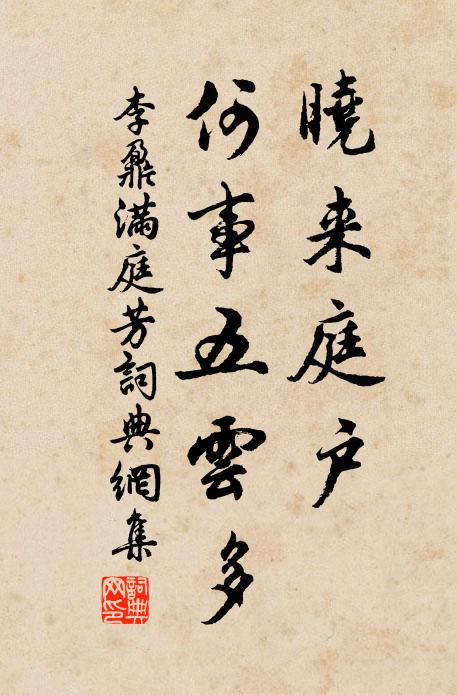 曉来庭户
何事五雲多
李鼐滿庭芳詞典網集
詞典网印